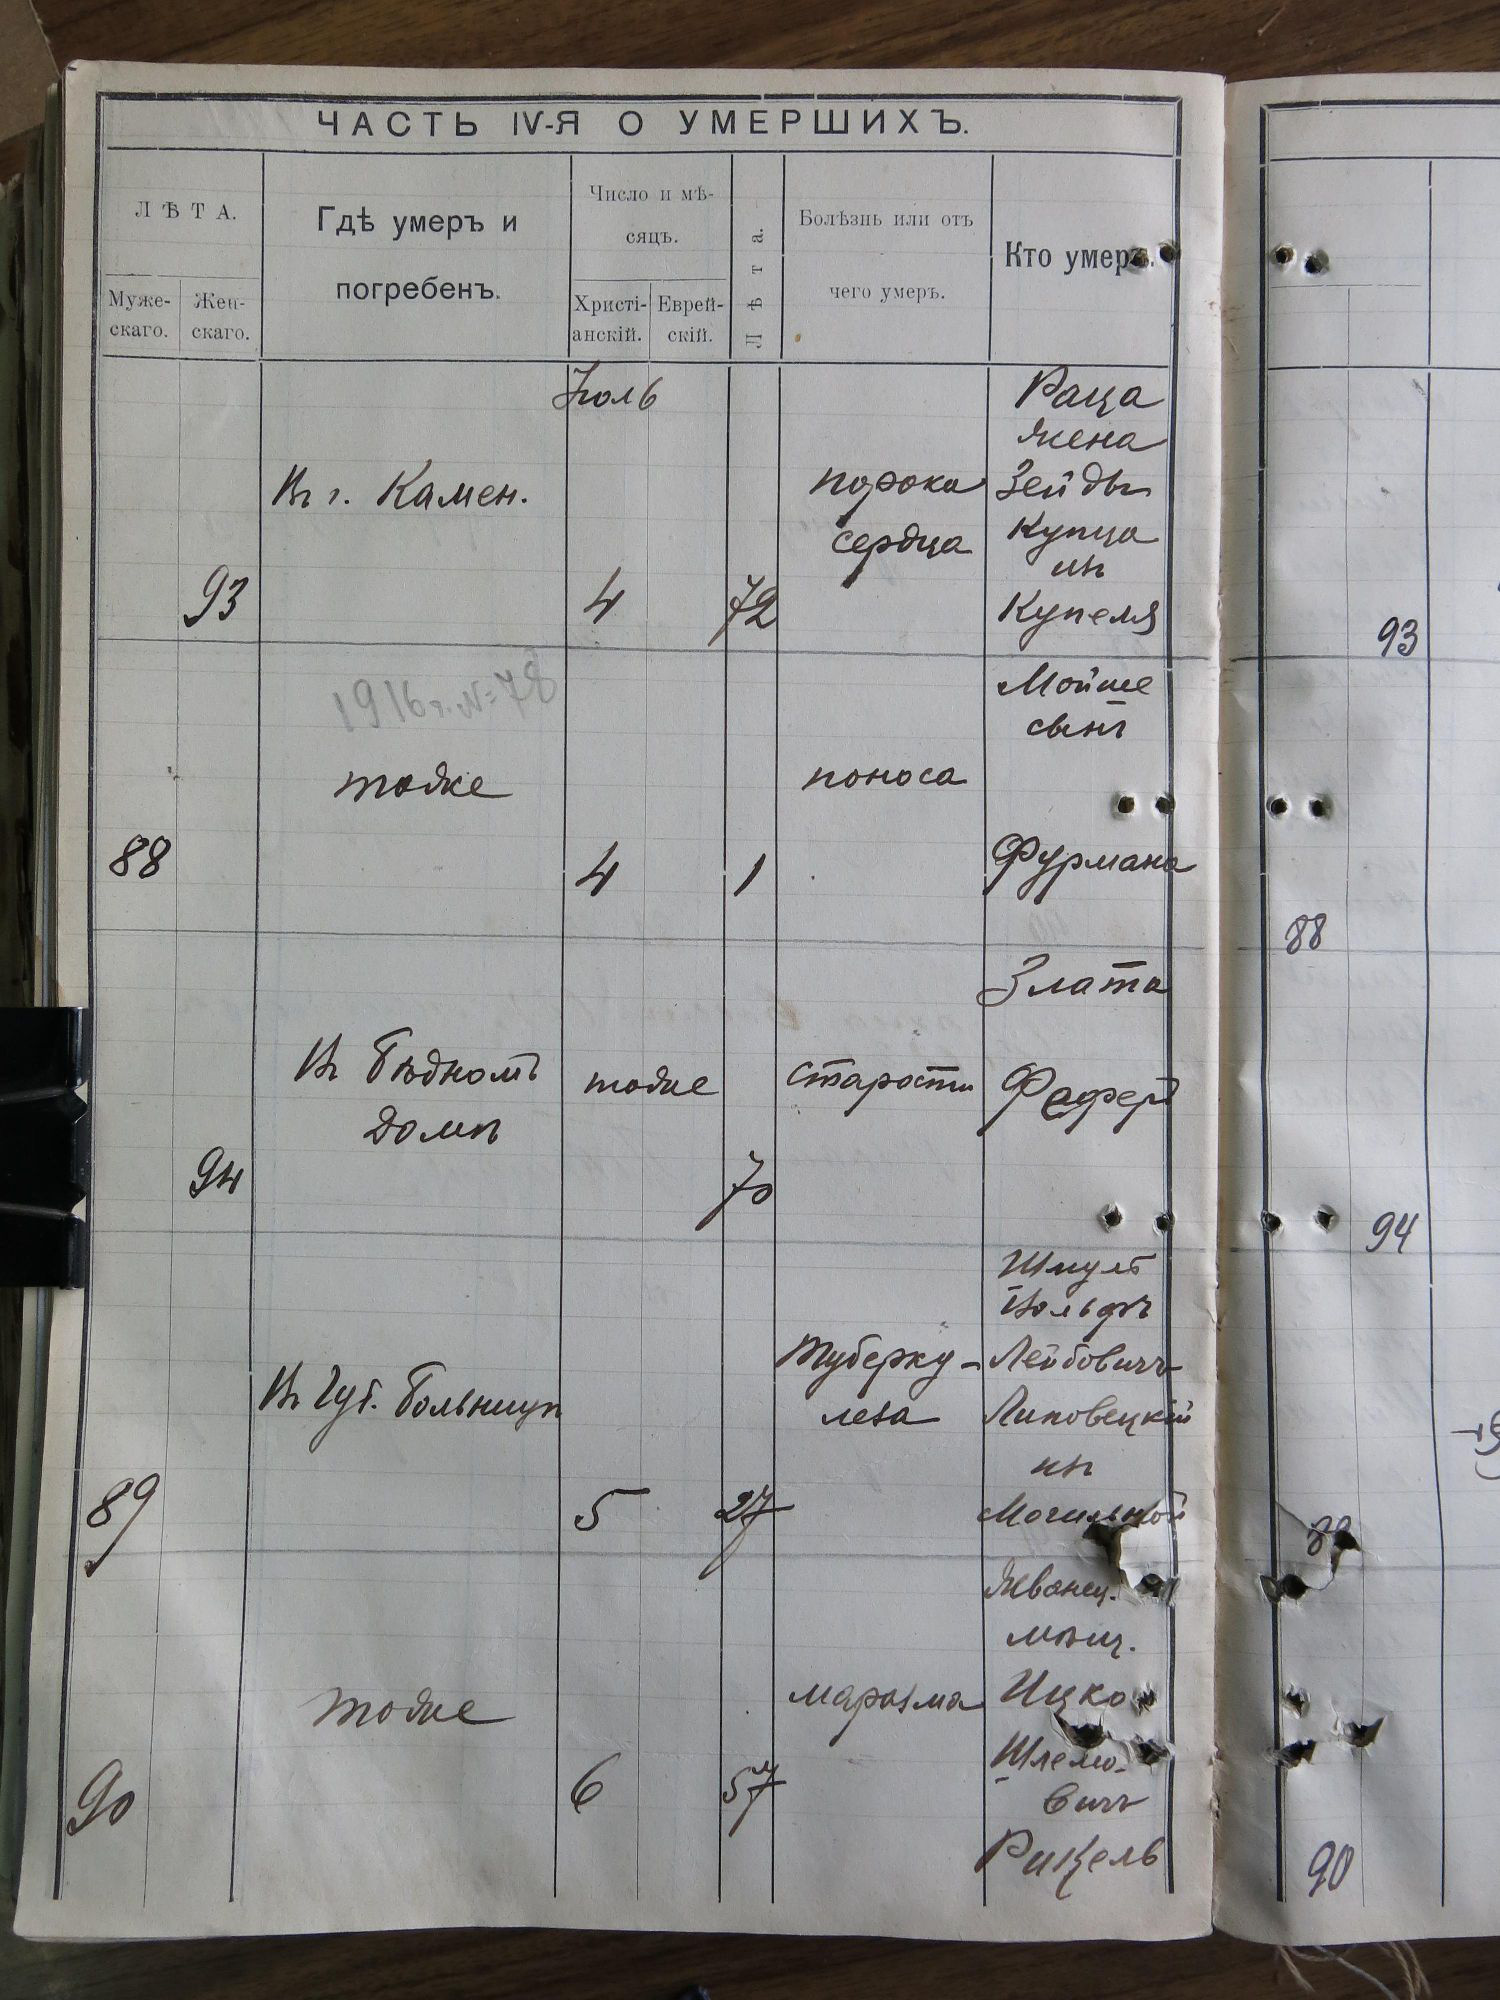 ЧАСТЬ IV-Я О УМЕРШИХЪ.
ЛѢТА.
Муже-
скаго.
Жен-
скаго.
Гдѣ умеръ и
погребенъ.
Число и мѣ-
сяцъ.
Христі-
анскій.
Еврей-
скій.
Лѣта.
Болѣзнь или отъ
чего умеръ.
Кто умеръ.
Іюль
93
Въ г. Камен.
4
72
порока
сердца
Раца
жена
Зейды
Купца
изъ
Купеля
93
1916 г. №=78
88
тоже
4
1
поноса
Мойше
сынъ
Фурмана
88
94
Въ Бѣдномъ
Домѣ
тоже
70
старости
Злата
Фаферъ
94
89
Въ Губ. Больницѣ
5
27
Туберку-
леза
Шмуль
Вольфъ
Лейбовичъ
Липовецкій
изъ
Могильной
89
90
тоже
6
57
маразма
Жванец.
мѣщ.
Ицко
Шлемо-
вичъ
Рицель
90